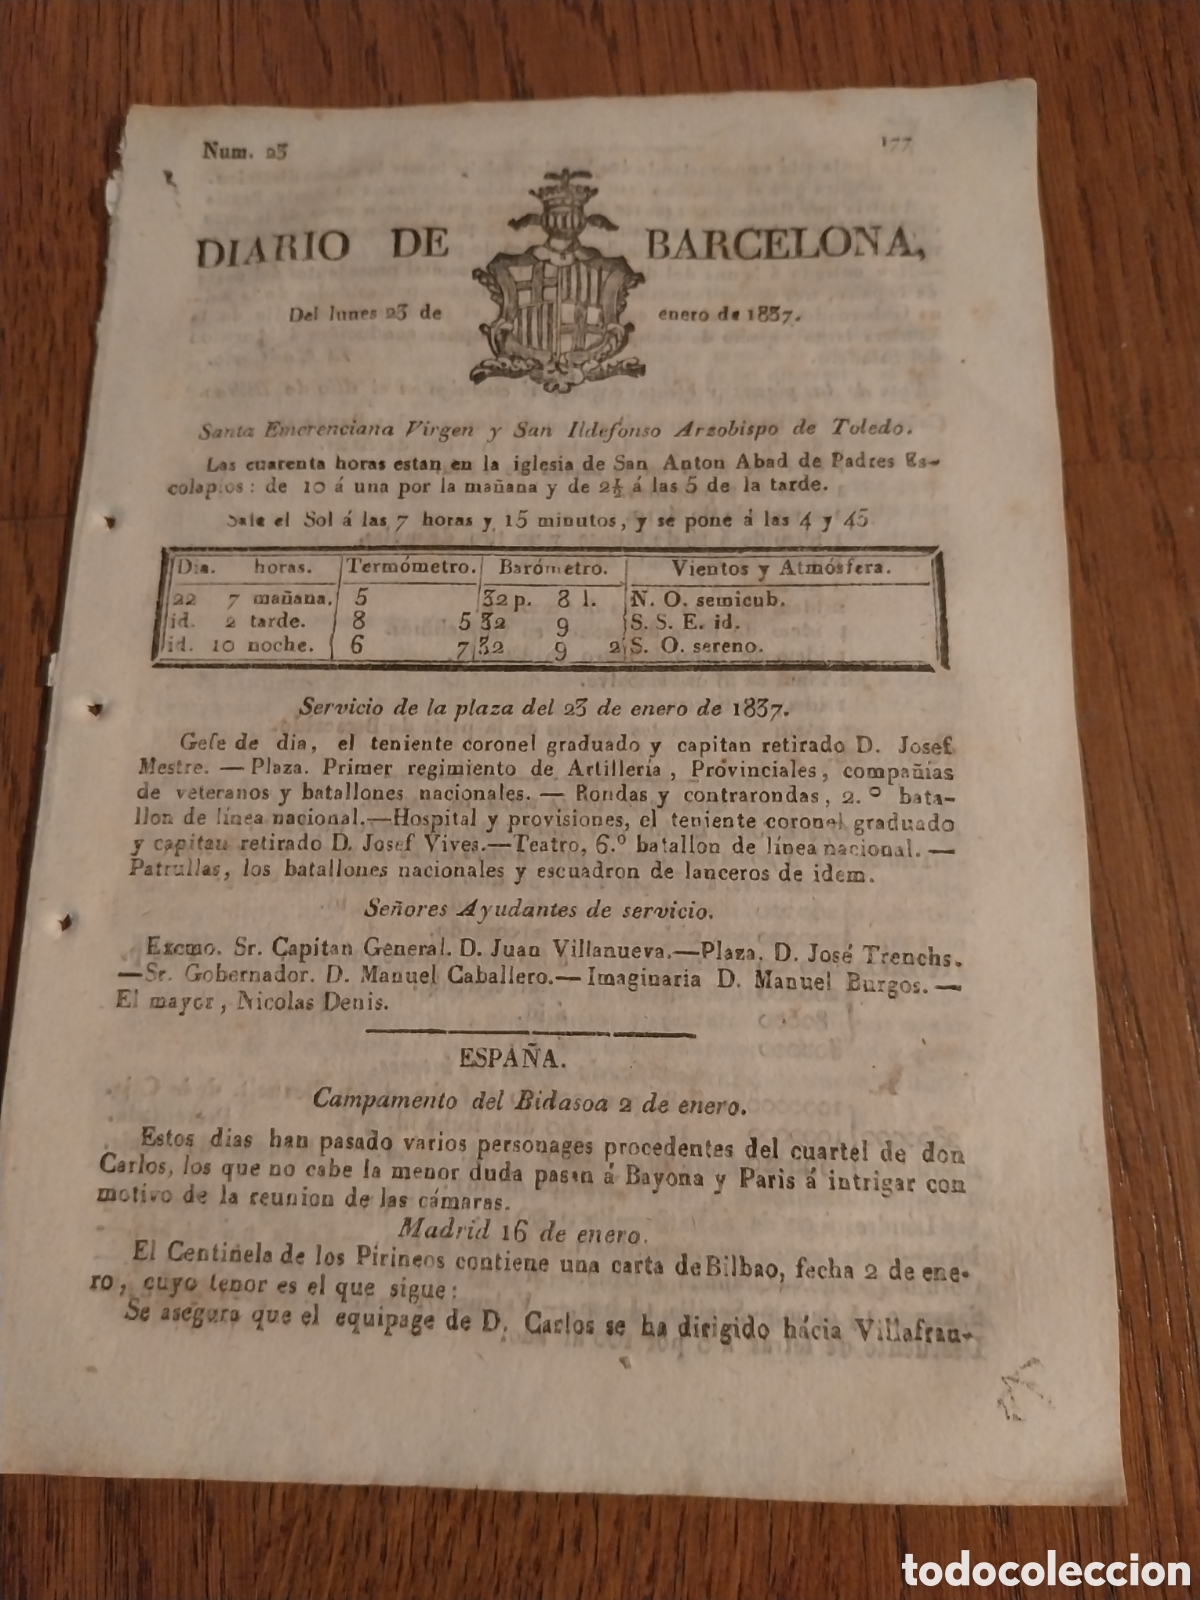 Num. 23
177
DIARIO DE BARCELONA,
Del lunes 23 de enero de 1837.
Santa Emerenciana Virgen y San Ildefonso Arzobispo de Toledo.
Las cuarenta horas estan en la iglesia de San Anton Abad de Padres Es-
colapios: de 10 á una por la mañana y de 2½ á las 5 de la tarde.
Sale el Sol á las 7 horas y 15 minutos, y se pone á las 4 y 45
Dia. horas. Termómetro. Barómetro. Vientos y Atmósfera.
22 7 mañana. 5 32 p. 8 l. N. O. semicub.
id. 2 tarde. 8 5 32 9 S. S. E. id.
id. 10 noche. 6 7 32 9 2 S. O. sereno.
Servicio de la plaza del 23 de enero de 1837.
Gefe de dia, el teniente coronel graduado y capitan retirado D. Josef
Mestre. — Plaza. Primer regimiento de Artillería, Provinciales, compañias
de veteranos y batallones nacionales. — Rondas y contrarondas, 2.º bata-
llon de línea nacional.—Hospital y provisiones, el teniente coronel graduado
y capitan retirado D. Josef Vives.—Teatro, 6.º batallon de línea nacional. —
Patrullas, los batallones nacionales y escuadron de lanceros de idem.
Señores Ayudantes de servicio.
Excmo. Sr. Capitan General. D. Juan Villanueva.—Plaza. D. José Trenchs.
—Sr. Gobernador. D. Manuel Caballero.— Imaginaria D. Manuel Burgos. —
El mayor, Nicolas Denis.
ESPAÑA.
Campamento del Bidasoa 2 de enero.
Estos dias han pasado varios personages procedentes del cuartel de don
Carlos, los que no cabe la menor duda pasan á Bayona y Paris á intrigar con
motivo de la reunion de las cámaras.
Madrid 16 de enero.
El Centinela de los Pirineos contiene una carta de Bilbao, fecha 2 de ene-
ro, cuyo tenor es el que sigue:
Se asegura que el equipage de D. Carlos se ha dirigido hácia Villafran-
todocoleccion